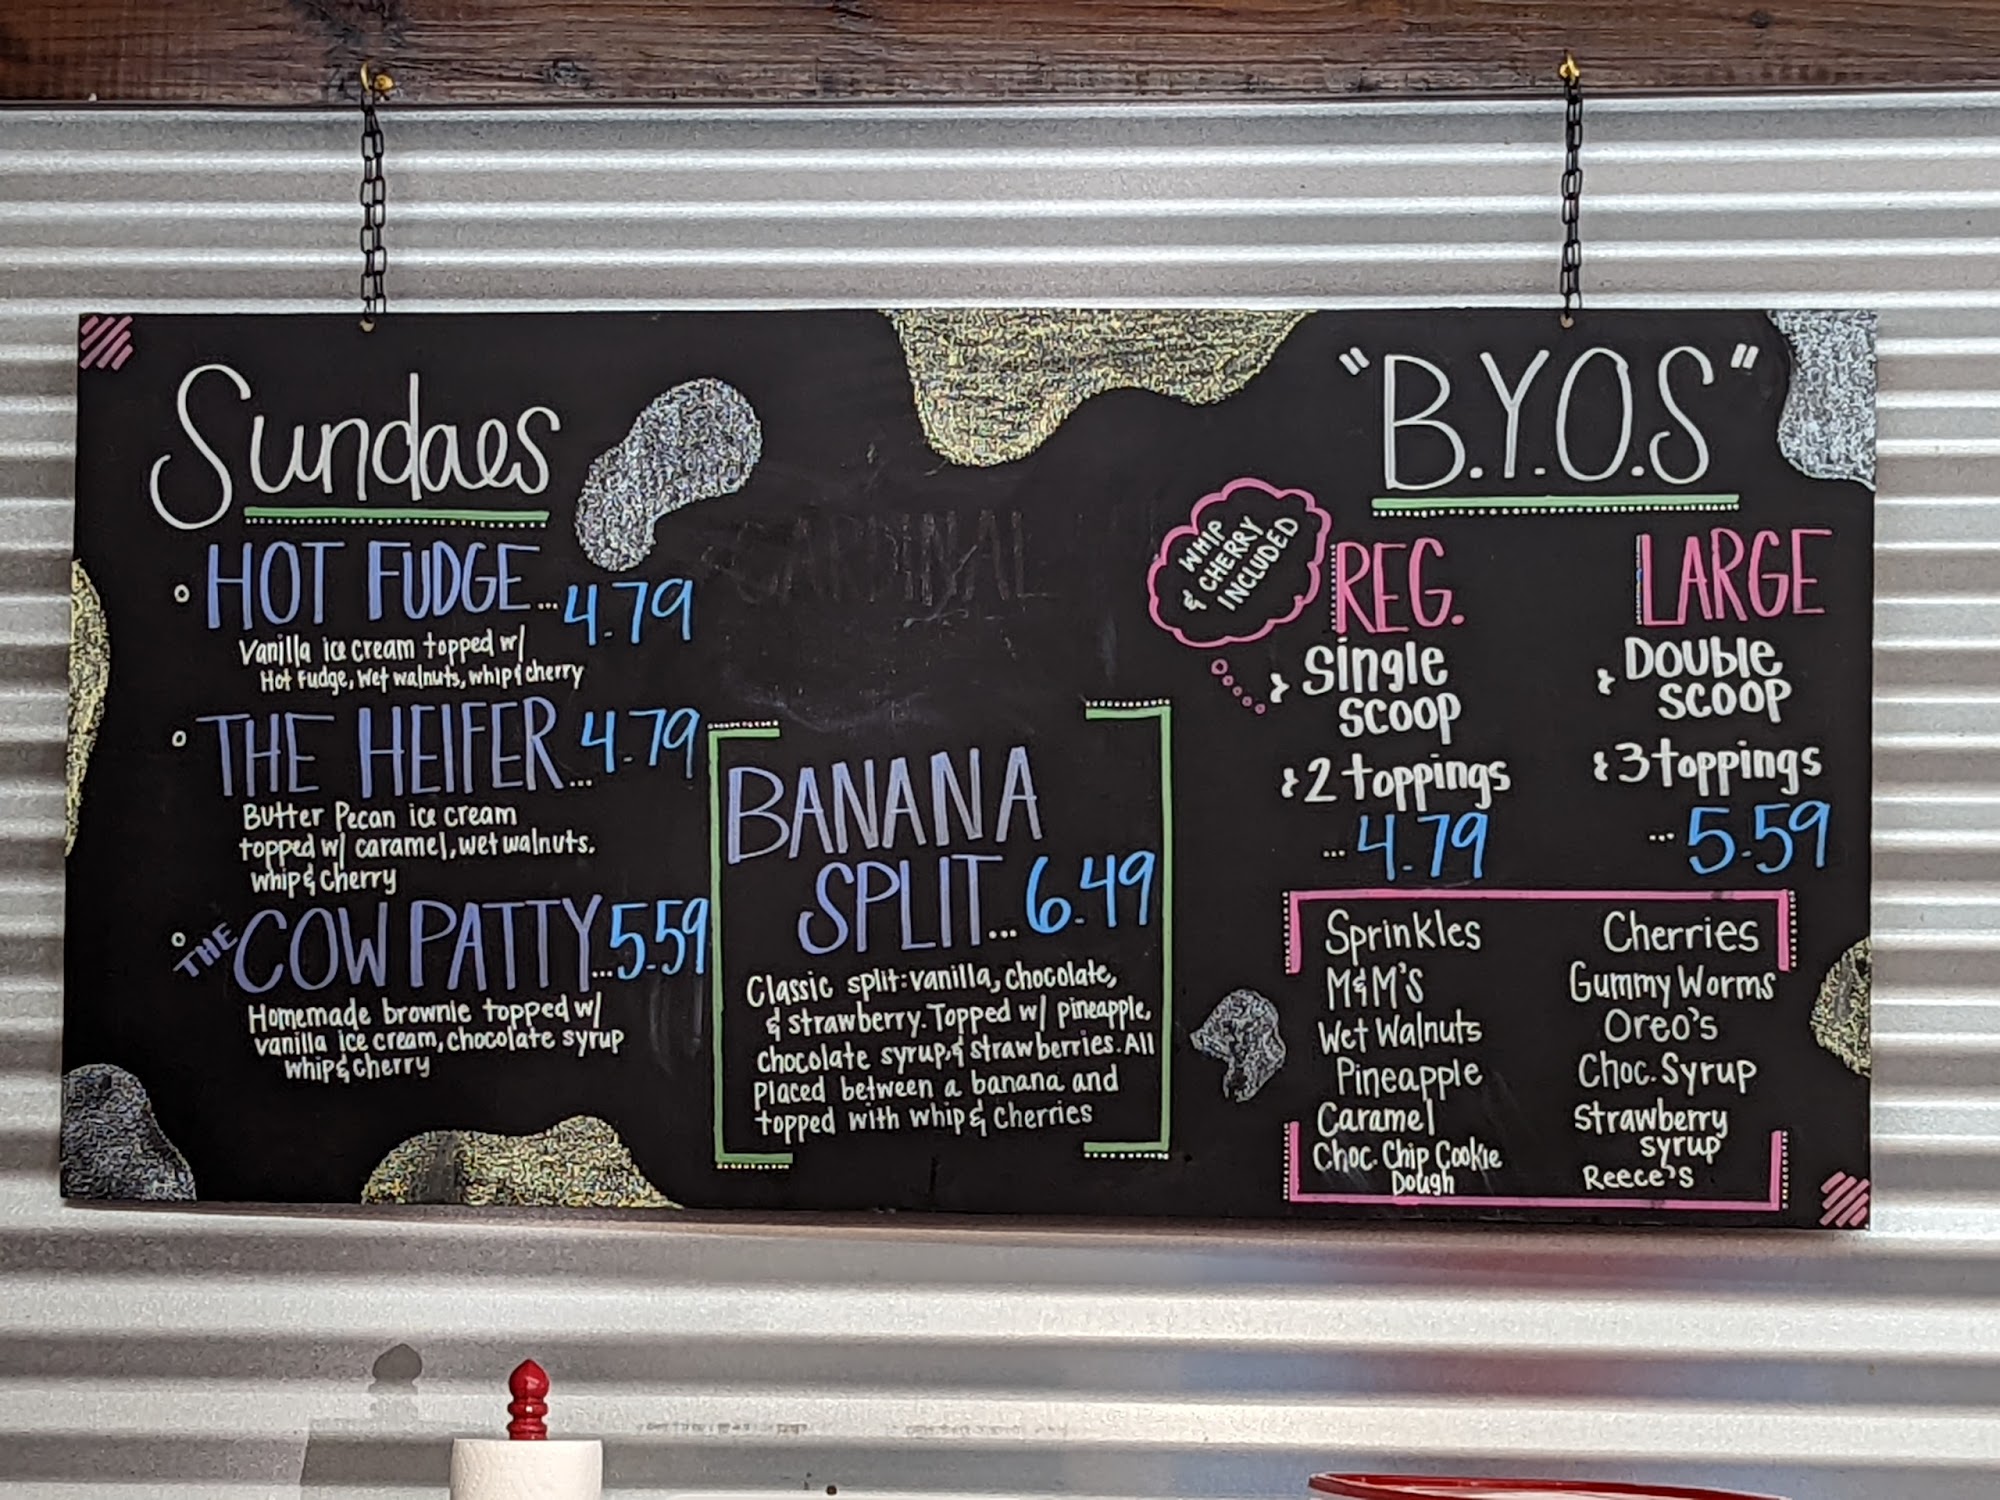 Sundaes
HOT FUDGE...4.79
Vanilla ice cream topped w/
Hot fudge, wet walnuts, whip & cherry
THE HEIFER...4.79
Butter Pecan ice cream
topped w/ caramel, wet walnuts.
whip & cherry
THE COW PATTY...5.59
Homemade brownie topped w/
vanilla ice cream, chocolate syrup
whip & cherry
CARDINAL
BANANA
SPLIT...6.49
Classic split: vanilla, chocolate,
& strawberry. Topped w/ pineapple,
chocolate syrup, & strawberries. All
placed between a banana and
topped with whip & cherries
"B.Y.O.S"
WHIP
& CHERRY
INCLUDED
REG.
& Single
SCOOP
& 2 toppings
...4.79
LARGE
& DOUBLE
SCOOP
& 3 toppings
...5.59
Sprinkles
M&M'S
Wet Walnuts
Pineapple
Caramel
Choc. Chip Cookie
Dough
Cherries
Gummy Worms
Oreo's
Choc. Syrup
Strawberry
syrup
Reece's